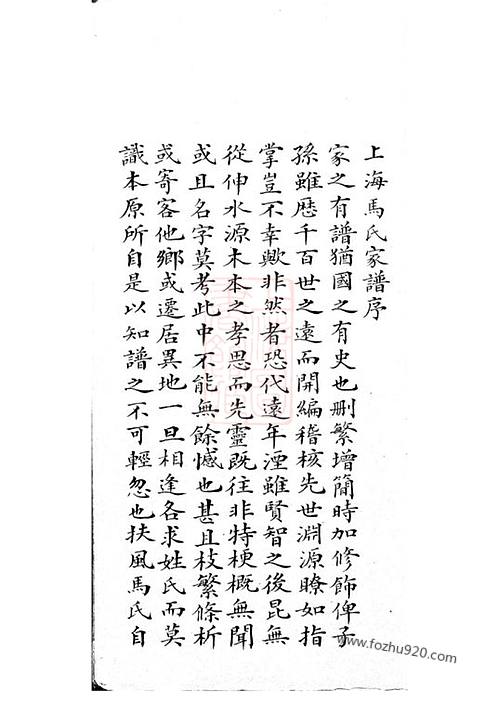 上海馬氏家譜序
家之有譜猶國之有史也刪繁增簡時加修飾俾子
孫雖歷千百世之遠而開編稽核先世淵源瞭如指
掌豈不幸歟非然者恐代遠年湮雖賢智之後昆無
從伸水源木本之孝思而先靈既往非特梗概無聞
或且名字莫考此中不能無餘憾也甚且枝繁條析
或寄客他鄉或遷居異地一旦相逢各求姓氏而莫
識本原所自是以知譜之不可輕忽也扶風馬氏自
www.fozhu920.com